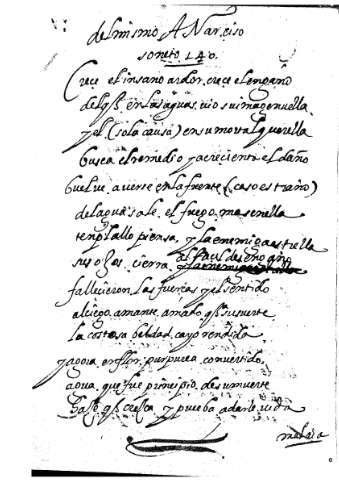 del mismo A Narciso
soneto 140.
Crece el insano ardor, crece el engaño
del q̃ en las aguas vio su imagen vella
y el (sola causa) en su mortal querella
busca el remedio y acrecienta el daño
buelve a verse en la fuente (caso estraño)
del agua sale el fuego, mas en ella
templallo piensa, y la enemiga estrella
sus ojos cierra al façil desengaño
fallecieron las fuerças y el sentido
al ciego amante amado, q̃ su suerte
la costosa beldad cayo rendida
y agora en flor purpurea convertido
agua que fue principio de su muerte
haze q̃ cresca y prueba a darle vida